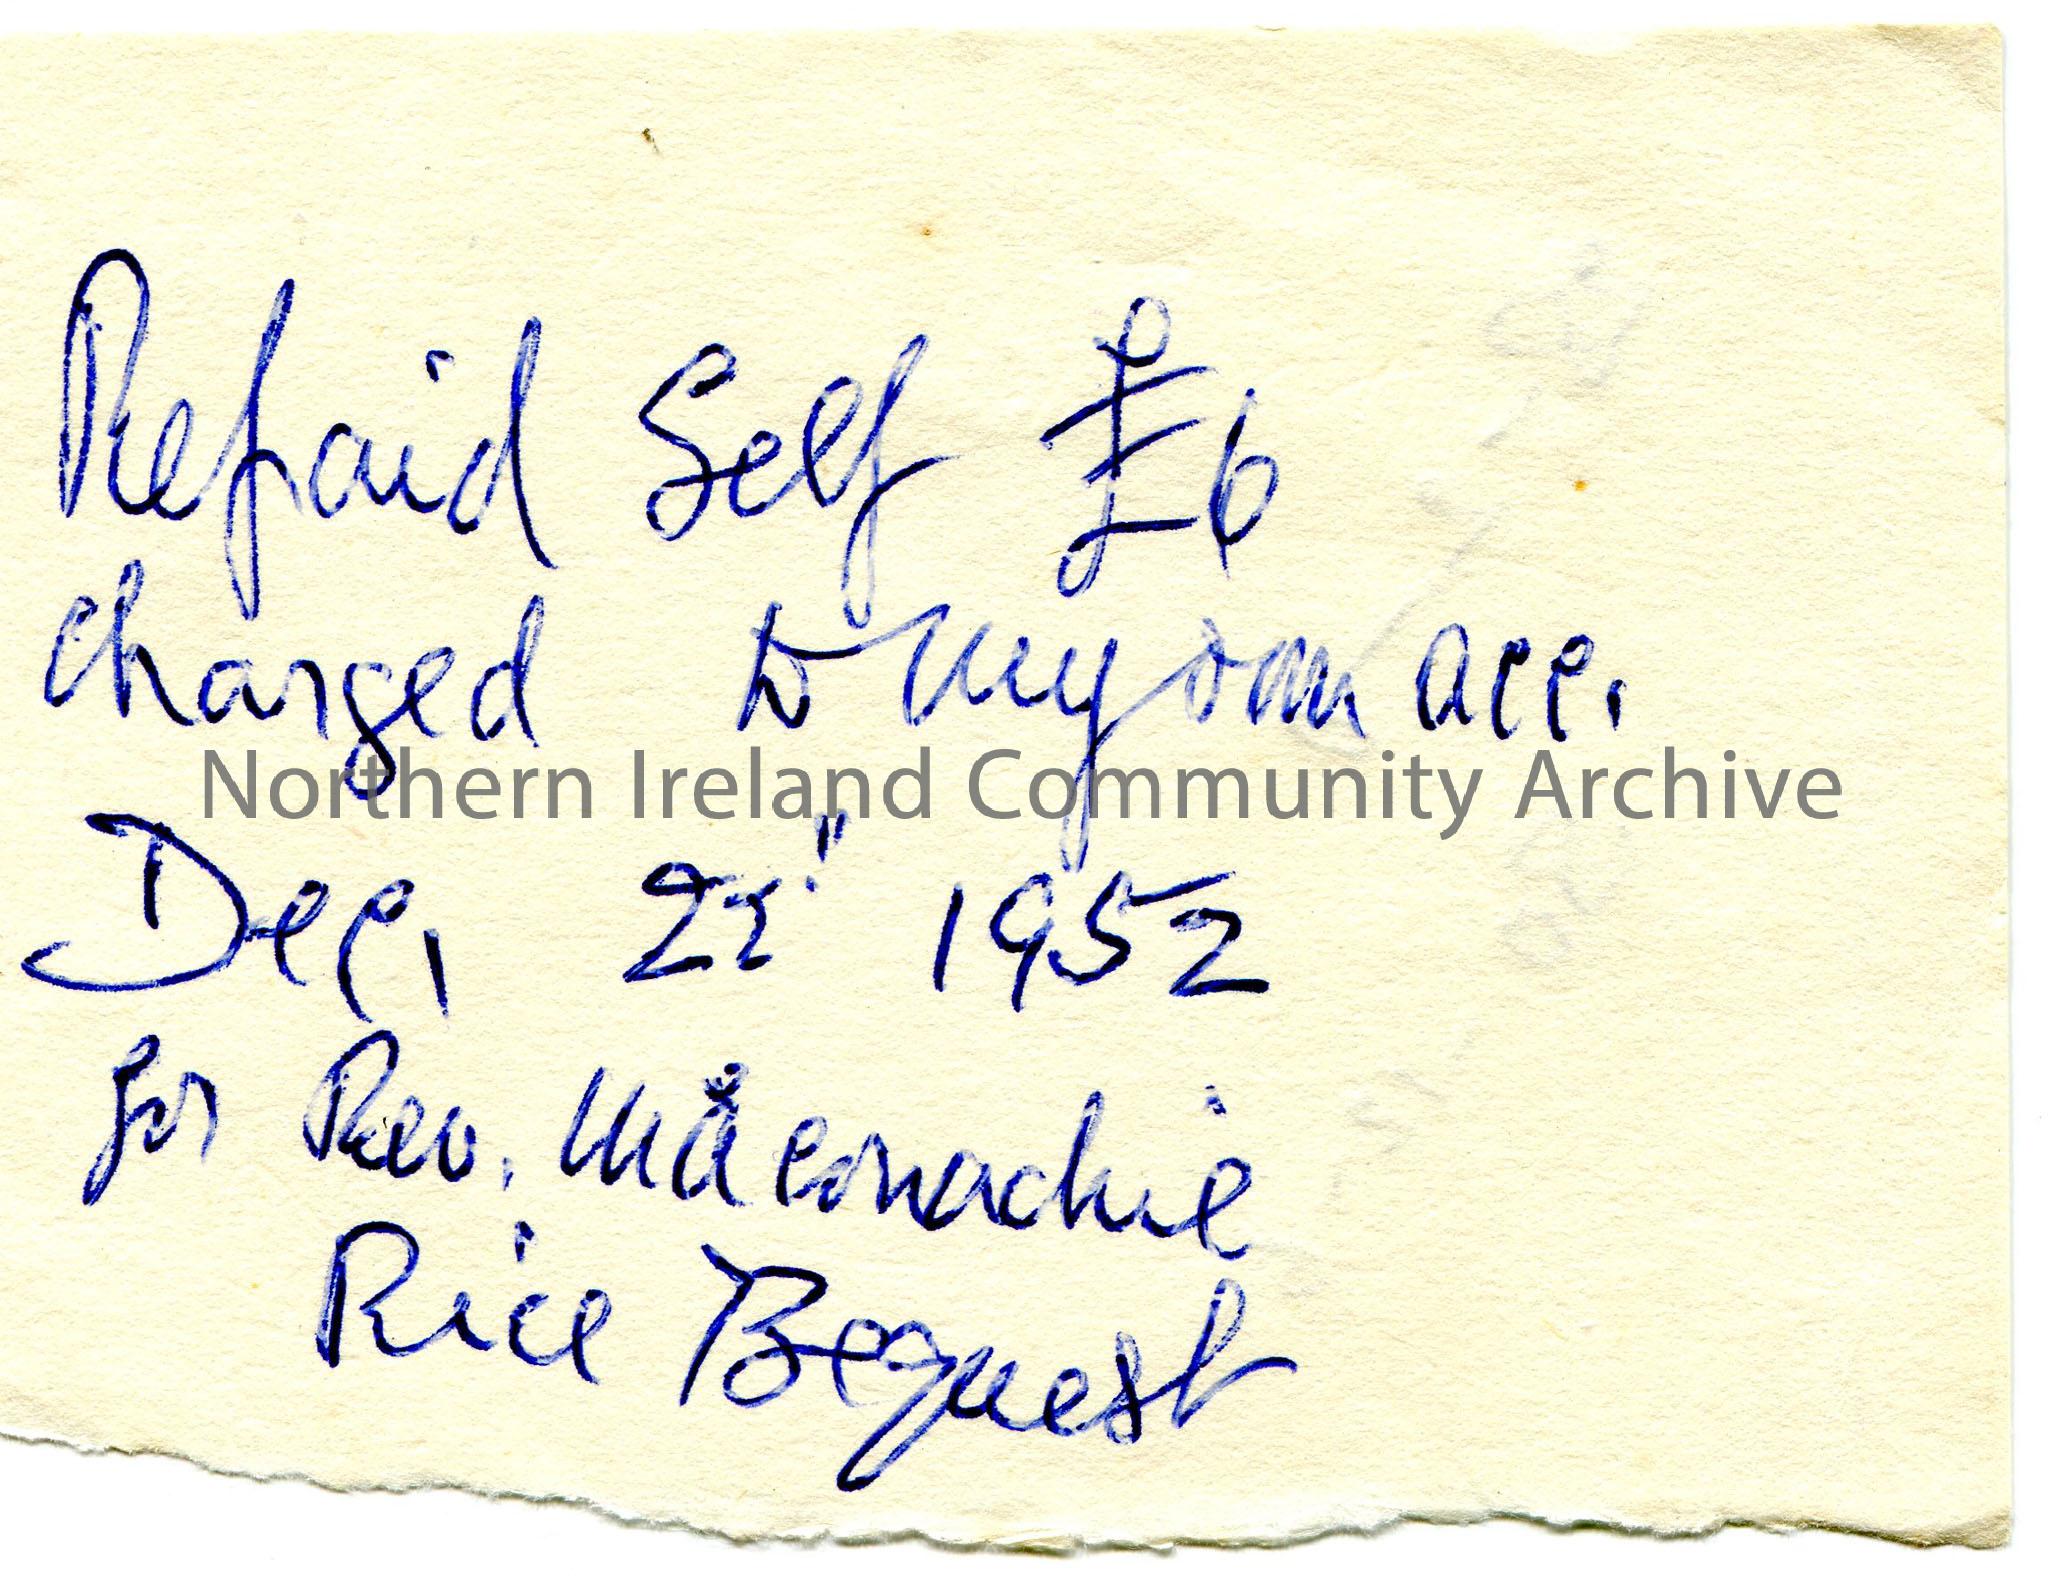 Repaid Self £6
charged to my own acc.
Northern Ireland Community Archive
Dec, 22" 1952
for Rev. Maconachie
Rice Bequest